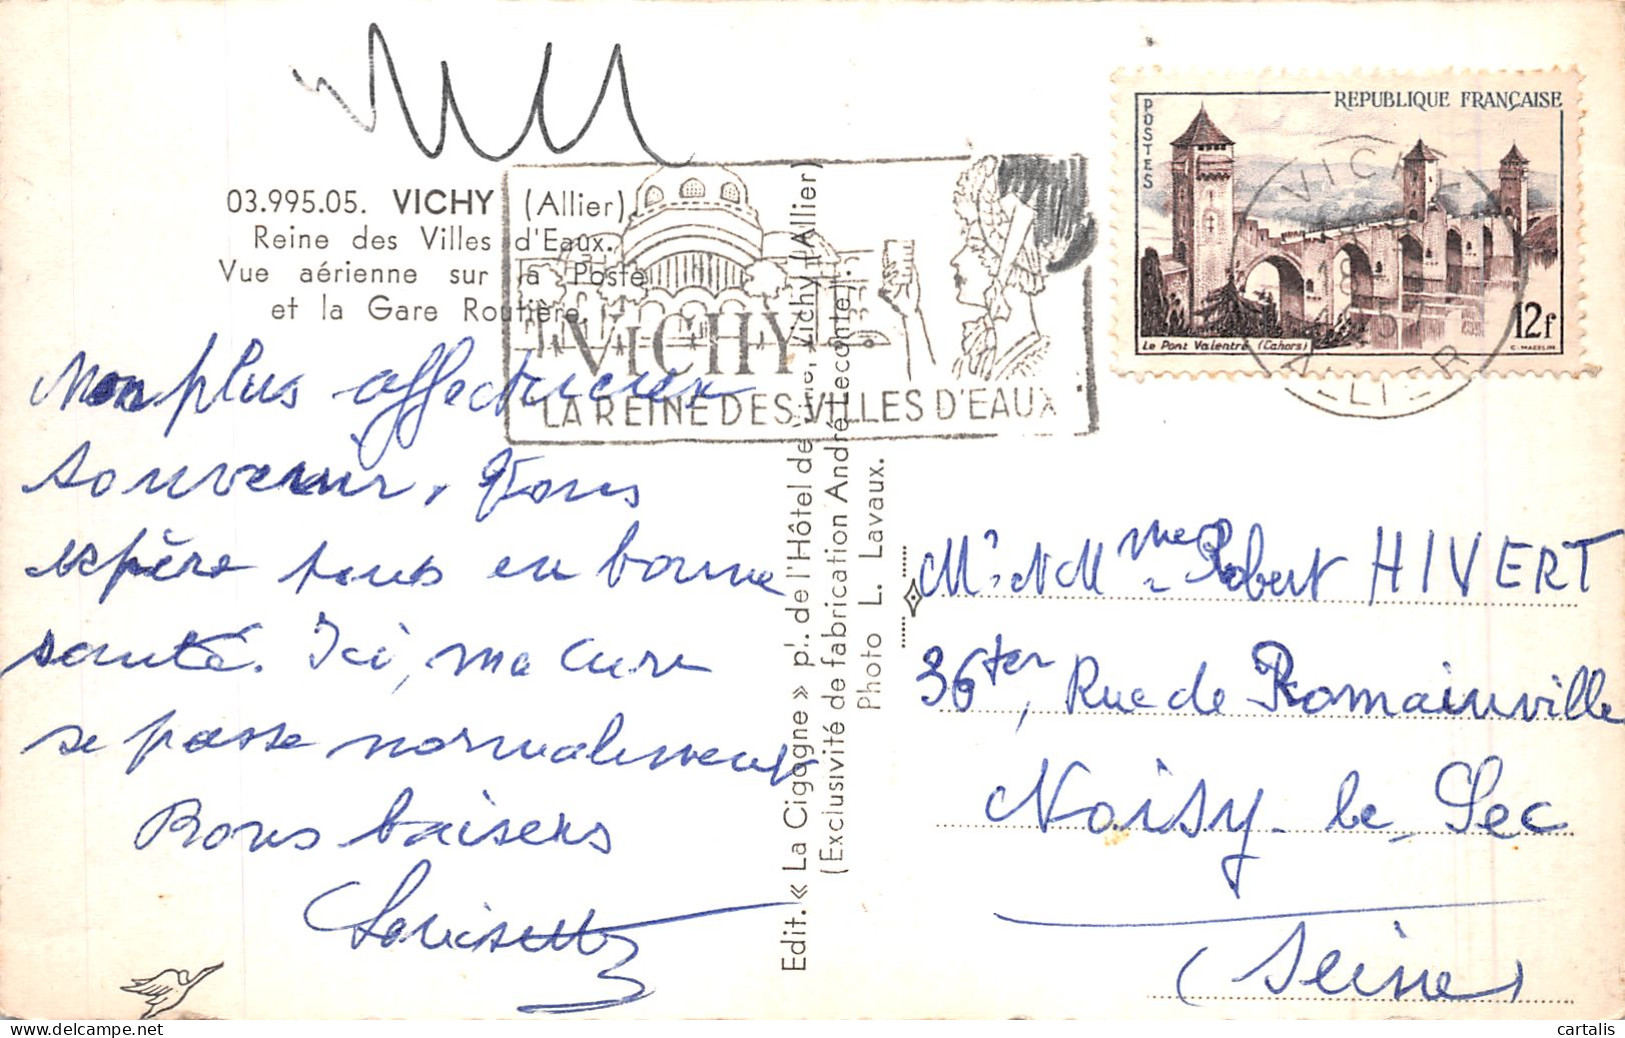 03.995.05. VICHY (Allier)
Reine des Villes d'Eaux.
Vue aérienne sur la Poste
et la Gare Routière.
Mon plus affectueux
souvenir. Vous
espère tous en bonne
santé. Ici, ma cure
se passe normalement
Bons baisers
Louisette
VICHY
LA REINE DES VILLES D'EAUX
Edit. « La Cigogne » pl. de l'Hôtel de Ville, Vichy (Allier)
(Exclusivité de fabrication André Leconte).
Photo L. Lavaux.
POSTES
REPUBLIQUE FRANÇAISE
Le Pont Valentré (Cahors)
12f
C. MAZELIN
VICHY
18
ALLIER
Mr et Mme Robert HIVERT
36ter, Rue de Romainville
Noisy-le-Sec
(Seine)
cartalis